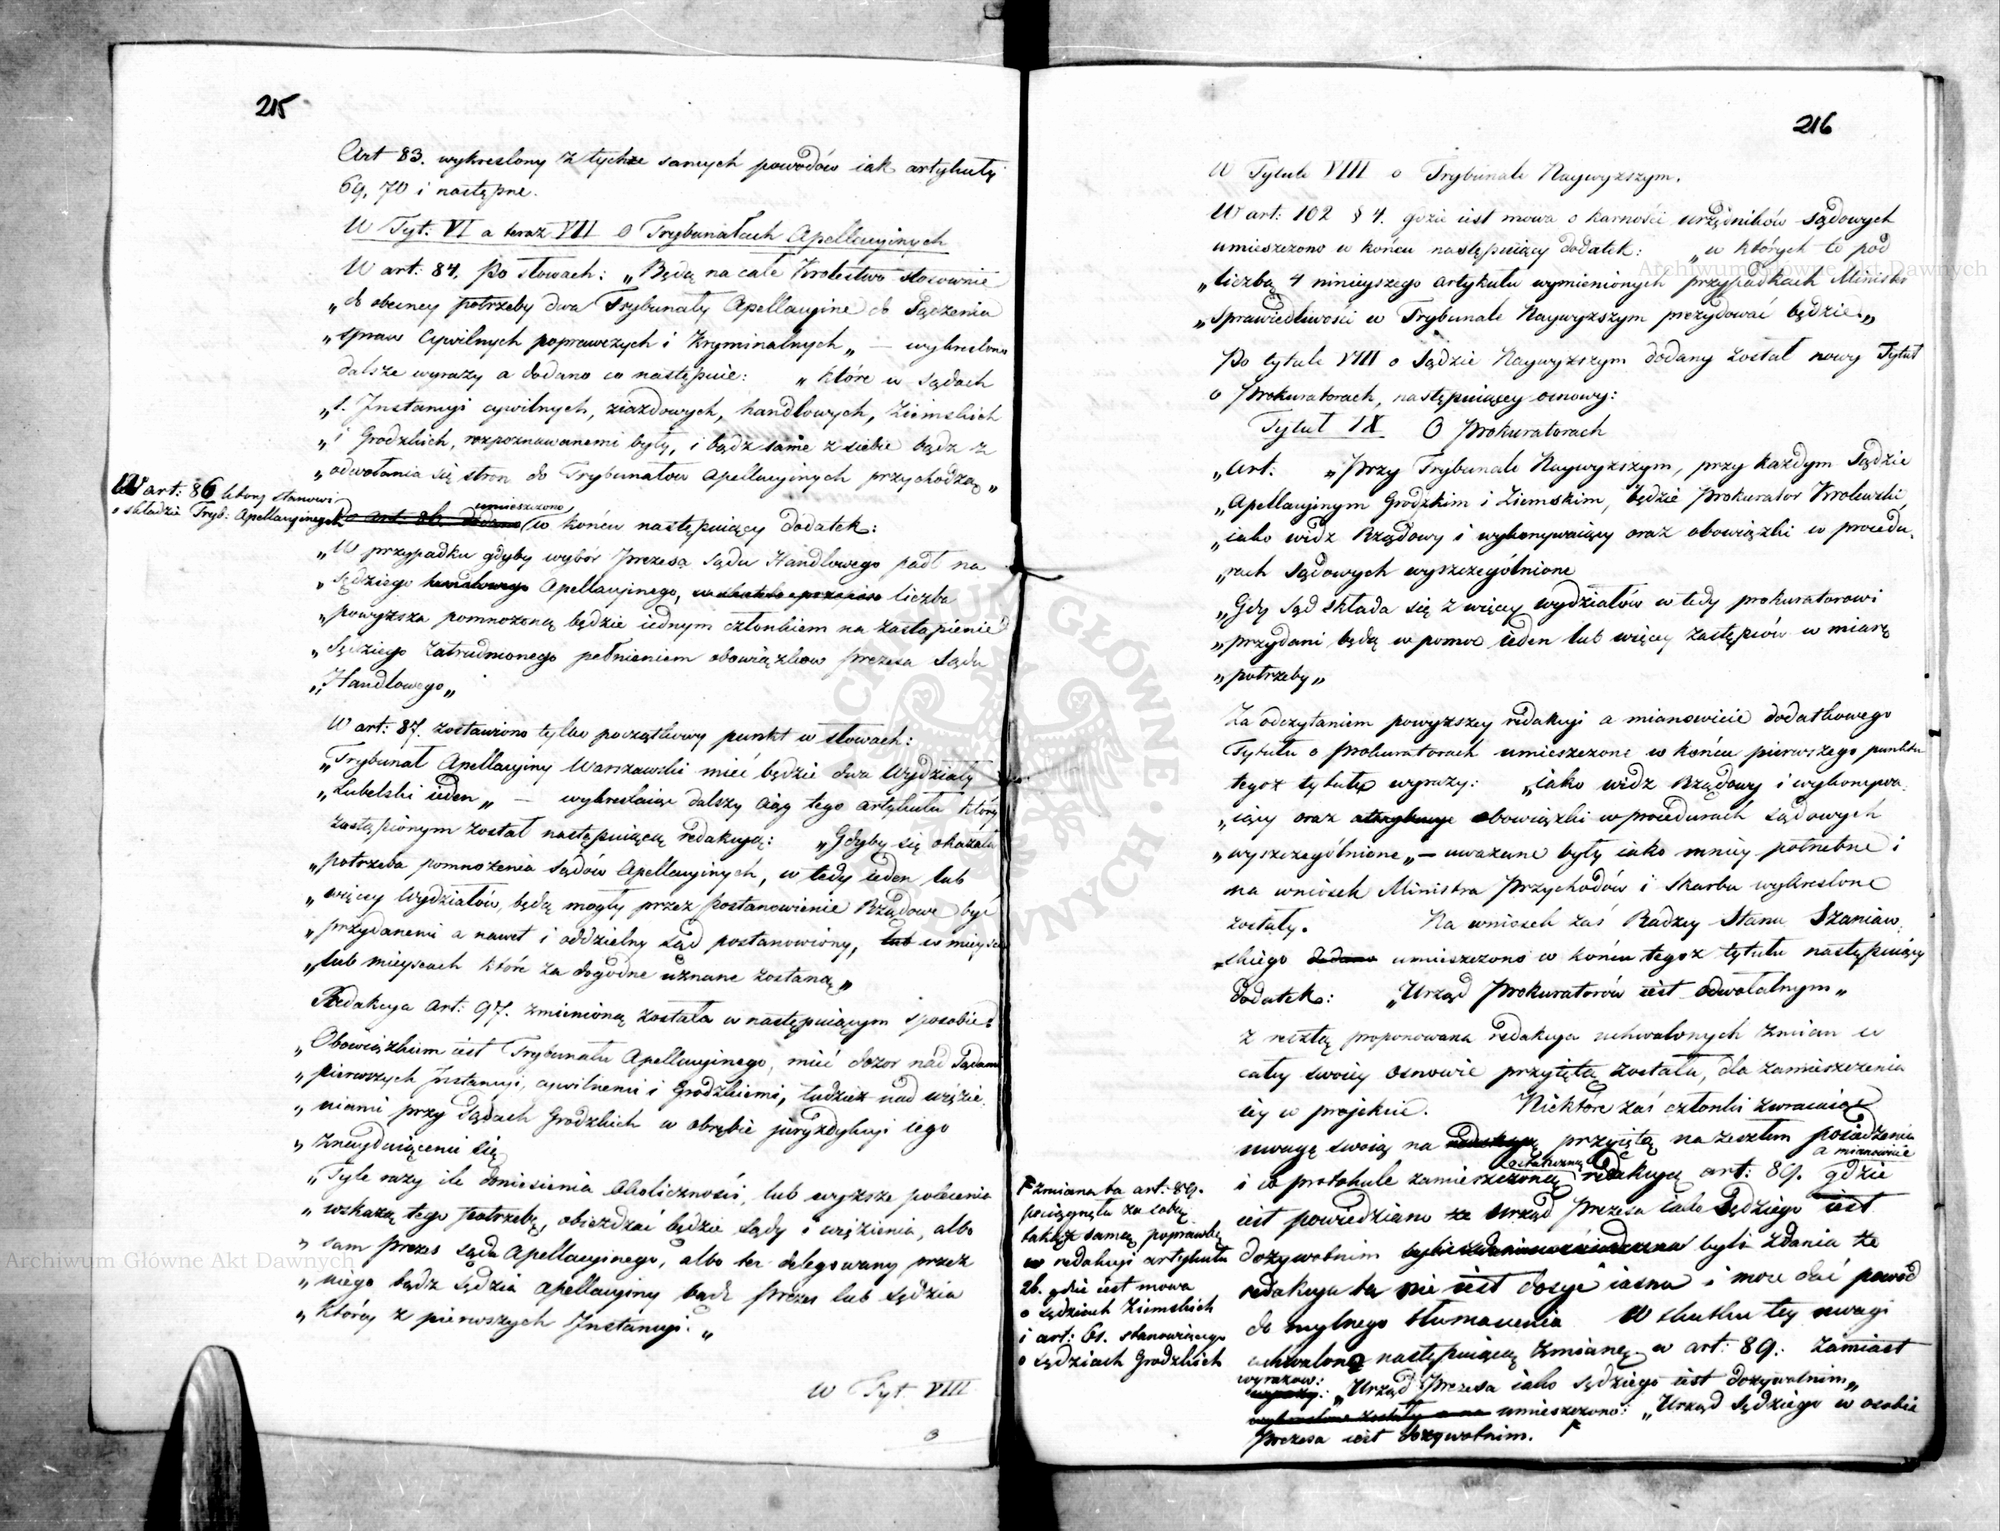 215
Art 83. wykreslony z tychże samych powodów iak artykuły
69, 70 i następne.
W Tyt. VI a teraz VII O Trybunałach Apellacyinych
W art: 84. Po słowach: „Będą na całe Krolestwo stosownie
„do obecney potrzeby dwa Trybunały Apellacyine do sądzenia
„spraw Cywilnych poprawczych i Kryminalnych„ — wykreslono
dalsze wyrazy a dodano co następuie: „które w sądach
„1. Instancyi cywilnych, ziazdowych, handlowych, Ziemskich
„i Grodzkich, rozpoznawanemi były, i bądź same z siebie bądz z
„odwołania się stron do Trybunałów Apellacyinych przychodzą„
W art: 86 ktory stanowi
o składzie Tryb: Apellacyinych
umieszczono
Do art. 86. dodano w końcu następuiący dodatek:
„W przypadku gdyby wybór Prezesa Sądu Handlowego padł na
„sędziego handlowego Apellacyinego, liczba
„powyższa pomnożoną będzie iednym członkiem na zastąpienie
„Sędziego zatrudnionego pełnieniem obowiązkow Prezesa Sądu
„Handlowego„
W art: 87. zostawiono tylko początkowy punkt w słowach:
„Trybunał Apellacyiny Warszawski mieć będzie dwa Wydziały
„Lubelski ieden„ — wykreslaiąc dalszy ciąg tego artykułu który
zastąpionym został następuiącą redakcyą: „Gdyby się okazała
„potrzeba pomnożenia sądów Apellacyinych, w tedy ieden lub
„więcey Wydziałów, będą mogły przez Postanowienie Rządowe być
„przydanemi a nawet i oddzielny sąd postanowiony, lub w mieyscu
„lub mieyscach które za dogodne uznane zostaną„
Redakcya Art: 97. zmienioną została w następuiącym sposobie:
„Obowiązkiem iest Trybunału Apellacyinego, mieć dozor nad Sądami
„pierwszych Instancyi, cywilnemi i Grodzkiemi, tudzież nad więzie„
„niami przy Sądach Grodzkich w obrębie juryzdykcyi iego
„znayduiącemi się
„Tyle razy ile doniesienia okoliczności, lub wyższe polecenia
„wskażą tego potrzebę, obieżdżać będzie Sądy i więzienia, albo
„sam Prezes Sądu Apellacyinego, albo ter delegowany przez
„niego bądz Sędzia Apellacyiny bądz Prezes lub Sędzia
„Którey z pierwszych Instancyi.„
W Tyt. VIII
216
W Tytule VIII o Trybunale Naywyzszym.
W art: 102 § 4. gdzie iest mowa o karności urzędników sądowych
umieszczono w końcu następuiący dodatek: „w których to pod
„liczbą 4 ninieyszego artykułu wymienionych przypadkach Minister
„Sprawiedliwości w Trybunale Naywyzszym prezydować będzie„
Po tytule VIII o Sądzie Naywyzszym dodany został nowy Tytuł
o Prokuratorach, następuiącey osnowy:
Tytuł IX O Prokuratorach
„Art: „Przy Trybunale Naywyzszym, przy każdym Sądzie
„Apellacyinym Grodzkim i Ziemskim, będzie Prokurator Krolewski
„iako widz Rządowy i wykonywaiący oraz obowiązki w procedu„
„rach sądowych wyszczególnione
„Gdy sąd składa się z więcey wydziałów w tedy prokuratorowi
„przydani będą w pomoc ieden lub więcey zastępców w miarę
„potrzeby„
Za odczytaniem powyższey redakcyi a mianowicie dodatkowego
Tytułu o Prokuratorach umieszczone w końcu pierwszego punktu
tegoz tytułu wyrazy: „iako widz Rządowy i wykonywa„
„iący oraz obowiązki w procedurach sądowych
„wyszczególnione„ — uważane były iako mniey potrzebne i
na wniosek Ministra Przychodów i Skarbu wykreslone
zostały. Na wniosek zaś Radzcy Stanu Szaniaw„
„skiego dodano umieszczono w końcu tegoz tytułu następuiący
dodatek: „Urząd Prokuratorów iest odwołalnym„
Z resztą proponowana redakcya uchwalonych zmian w
całey swoiey osnowie przyiętą została, dla zamieszczenia
iey w projekcie. Niektóre zaś członki zwracaiąc
uwagę swoią na redakcyą przyiętą na zeszłem posiedzeniu
a mianowicie
i w protokule zamieszczoną redakcyą art: 89. gdzie
iest powiedziano że Urząd Prezesa iako Sędziego iest
dożywotnim byli zdania że
redakcya ta nie iest dosyć iasna i może dać powód
do mylnego tłumaczenia W skutku tey uwagi
uchwalono następuiącą zmianę w art: 89. Zamiast
wyrazow:
wyrazy: „Urząd Prezesa iako sędziego iest dożywotnim„
wykreslone zostały a na umieszczono: „Urząd Sędziego w osobie
Prezesa iest dożywotnim.
Zmiana ta art: 89.
pociągnęła za sobą
takąż samą poprawkę
w redakcyi artykułu
26. gdzie iest mowa
o sędziach Ziemskich
i art: 61. stanowiącego
o sędziach Grodzkich
Archiwum Główne Akt Dawnych
Archiwum Główne Akt Dawnych
ARCHIWUM GŁÓWNE AKT DAWNYCH